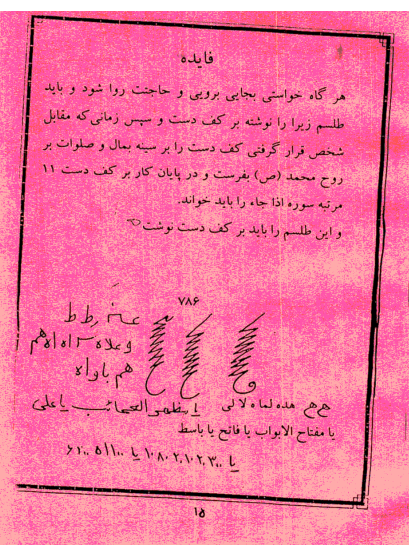 فایده
هر گاه خواستی بجایی برویی و حاجتت روا شود و باید
طلسم زیرا را نوشته بر کف دست و سپس زمانی‌که مقابل
شخص قرار گرفتی کف دست را بر سینه بمال و صلوات بر
روح محمد (ص) بفرست و در پایان کار بر کف دست ۱۱
مرتبه سوره اذا جاه را باید خواند.
و این طلسم را باید بر کف دست نوشت
۷۸۶
هم باواه
هده لماه لا لی یا مظهر العجائب یا علی
یا مفتاح الابواب یا فاتح یا باسط
۱۵